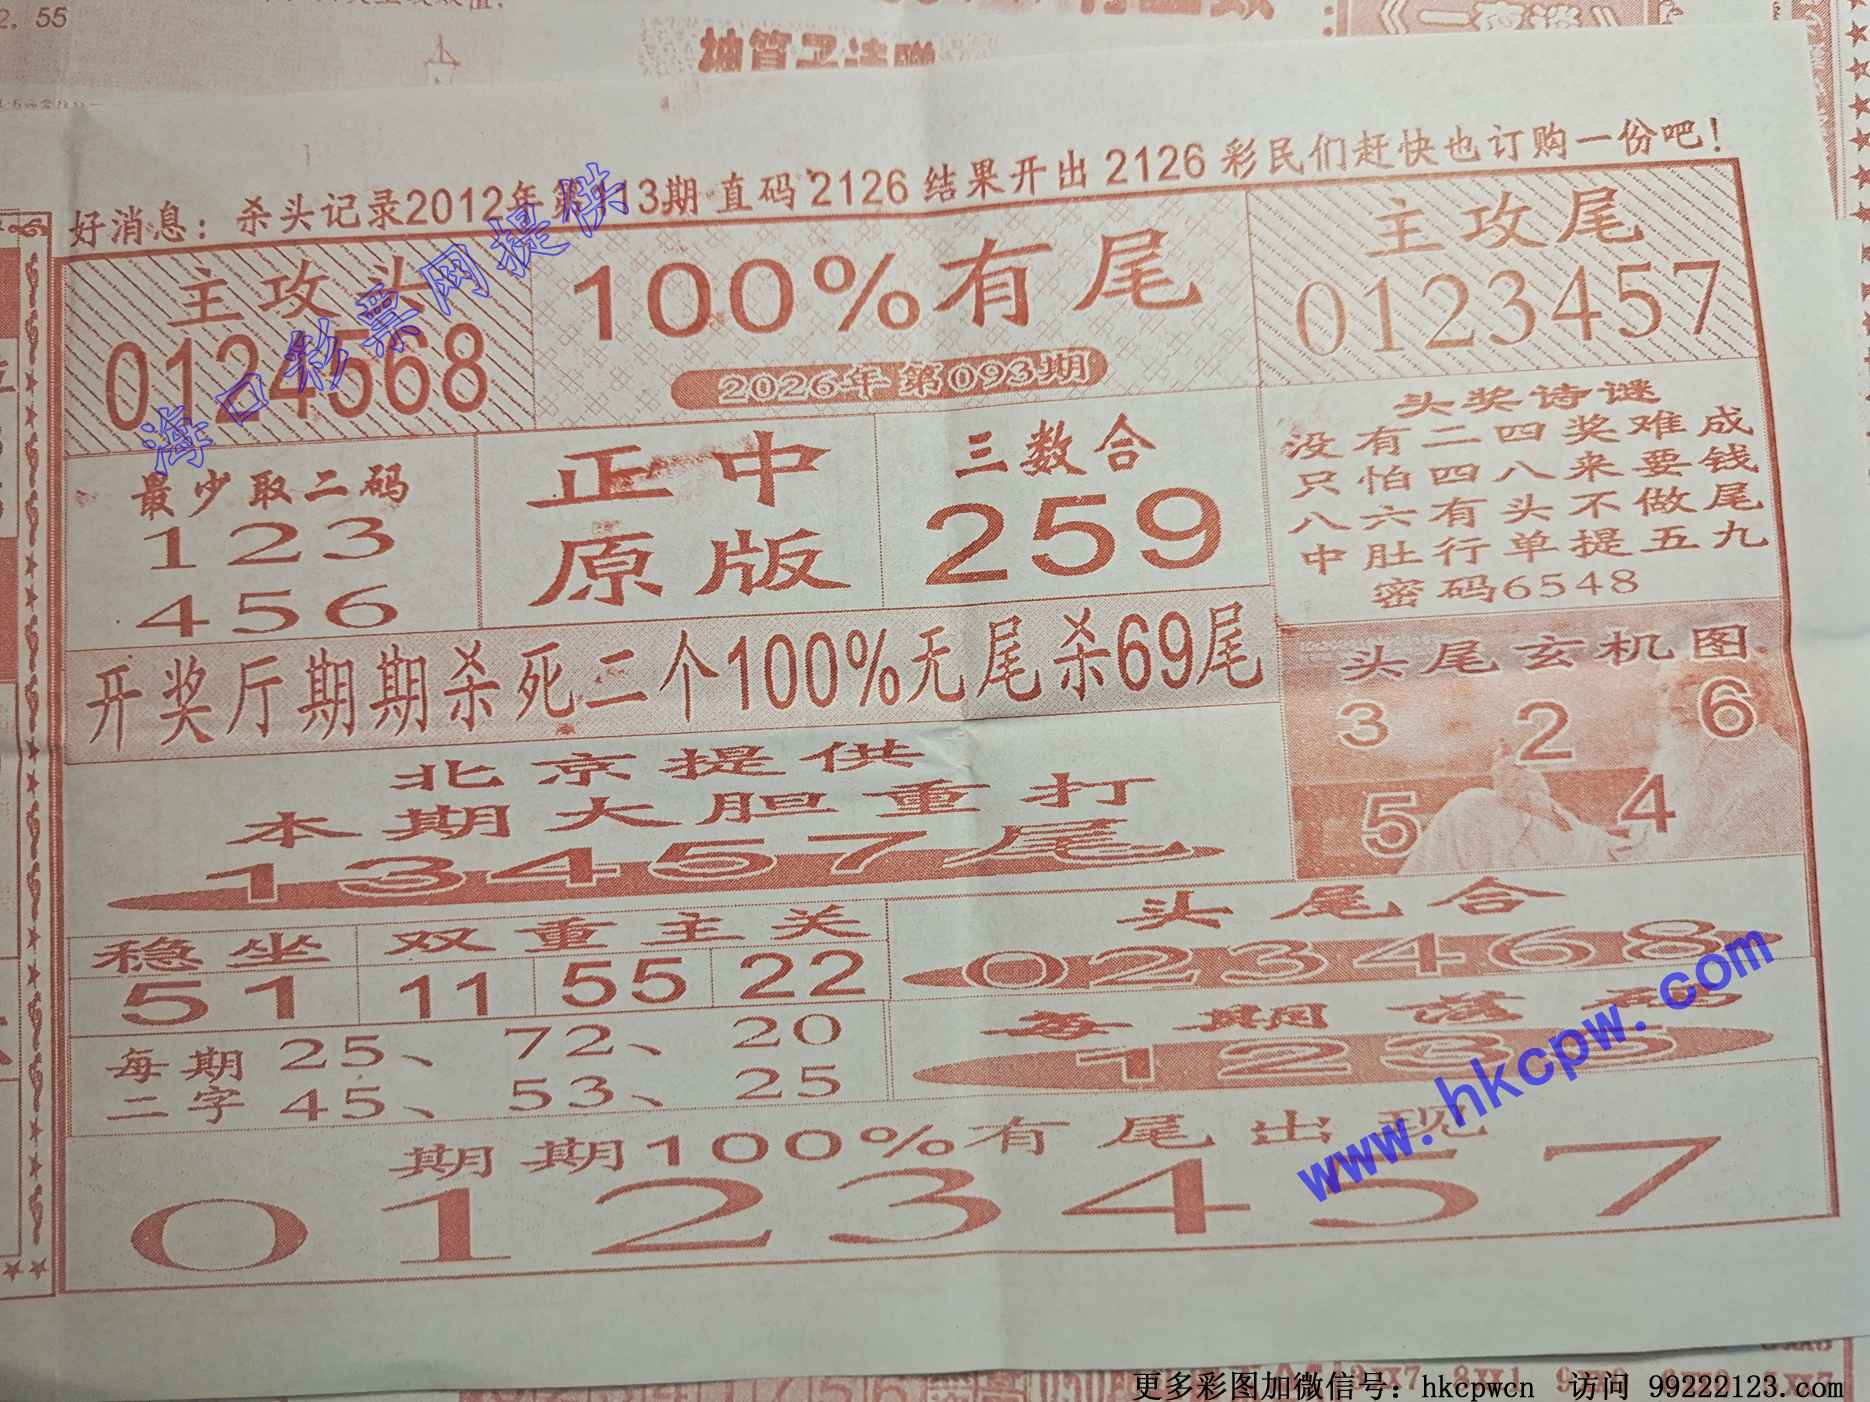 2. 55
好消息：杀头记录2012年第113期 直码 2126 结果开出 2126 彩民们赶快也订购一份吧！
主攻头
0124568
100%有尾
2026年第093期
主攻尾
0123457
最少取二码
123
456
正中
原版
三数合
259
头奖诗谜
没有二四奖难成
只怕四八来要钱
八六有头不做尾
中肚行单提五九
密码6548
开奖厅期期杀死二个100%无尾杀69尾
头尾玄机图
3 2 6
5 4
北京提供
本期大胆重打
13457尾
稳坐 双重主关
51 11 55 22
头尾合
023468
每期 25、 72、 20
二字 45、 53、 25
每期落
1235
期期100%有尾出现
0123457
海口彩票网提供
www.hkcpw.com
更多彩图加微信号：hkcpwcn 访问 99222123.com